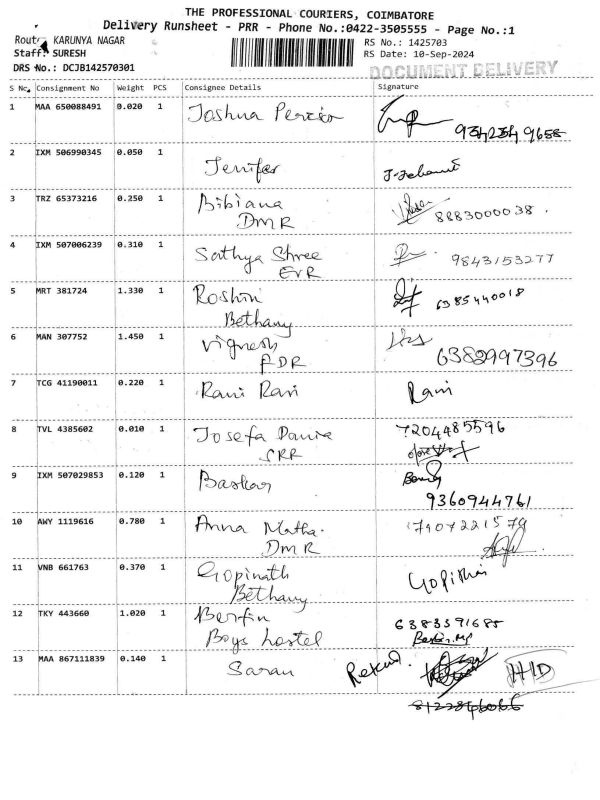 THE PROFESSIONAL COURIERS, COIMBATORE
Delivery Runsheet - PRR - Phone No.:0422-3505555 - Page No.:1
Route: KARUNYA NAGAR
RS No.: 1425703
Staff: SURESH
RS Date: 10-Sep-2024
DRS No.: DCJB142570301
DOCUMENT DELIVERY
S No. Consignment No Weight PCS Consignee Details Signature
1 MAA 650088491 0.020 1 Joshua
2 IXM 506990345 0.050 1 Jenifer
3 TRZ 65373216 0.250 1 Bibiana 8883000038.
DMR
4 IXM 507006239 0.310 1 Sathya Shree 9843153277
EVR
5 MRT 381724 1.330 1 Roshni 6385440018
Bethany
6 MAN 307752 1.450 1 Vignesh
FDR 6382997396
7 TCG 41190011 0.220 1 Rani Rani Rani
8 TVL 4385602 0.010 1 Josefa 7204485596
SRR
9 IXM 507029853 0.120 1 Baskar
9360944761
10 AWY 1119616 0.780 1 Anna Matha. 7907221579
DMR
11 VNB 661763 0.370 1 Gopinath
Bethany
12 TKY 443660 1.020 1 Berfin 6383591685
Boys hostel
13 MAA 867111839 0.140 1 Saran